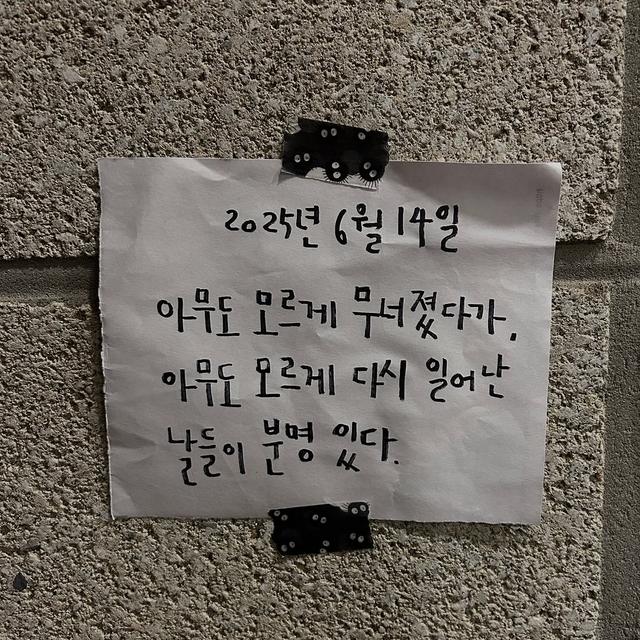 2025년 6월 14일
아무도 모르게 무너졌다가,
아무도 모르게 다시 일어난
날들이 분명 있다.